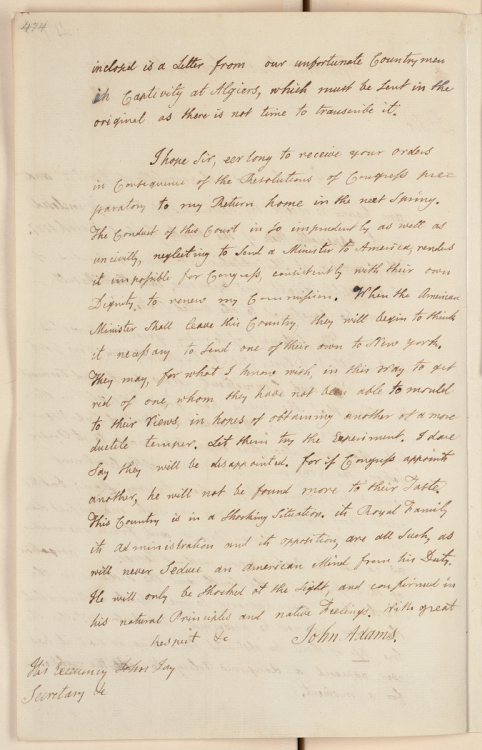 474
inclosed is a Letter from our unfortunate Countrymen
in Captivity at Algiers, which must be Sent in the
original as there is not time to transcribe it.
I hope Sir, eer long to receive your orders
in Consequence of the Resolutions of Congress pre
paratory to my Return home in the next Spring.
The Conduct of this Court in So imprudently as well as
uncivilly, neglecting to Send a Minister to America, renders
it impossible for Congress, consistently with their own
Dignity to renew my Commission. When the American
Minister Shall leave this Country they will begin to think
it necessary to Send one of their own to New York.
They may, for what I know wish, in this way to get
rid of one, whom they have not been able to mould
to their Views, in hopes of obtaining another of a more
ductile temper. Let them try the Experiment. I dare
Say they will be disappointed. for if Congress appoints
another, he will not be found more to their Taste.
This Country is in a Shocking Situation. its Royal Family
its administration and its opposition, are all Such, as
will never Seduce an American Mind from his Duty.
He will only be Shocked at the Sight, and confirmed in
his natural Principles and native Feelings. With great
respect &c John Adams.
His Excellency John Jay
Secretary &c